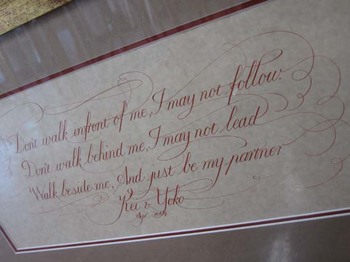 Dont walk infront of me, I may not follow:
Don't walk behind me, I may not lead
Walk beside me, And just be my partner
Kei & Yoko